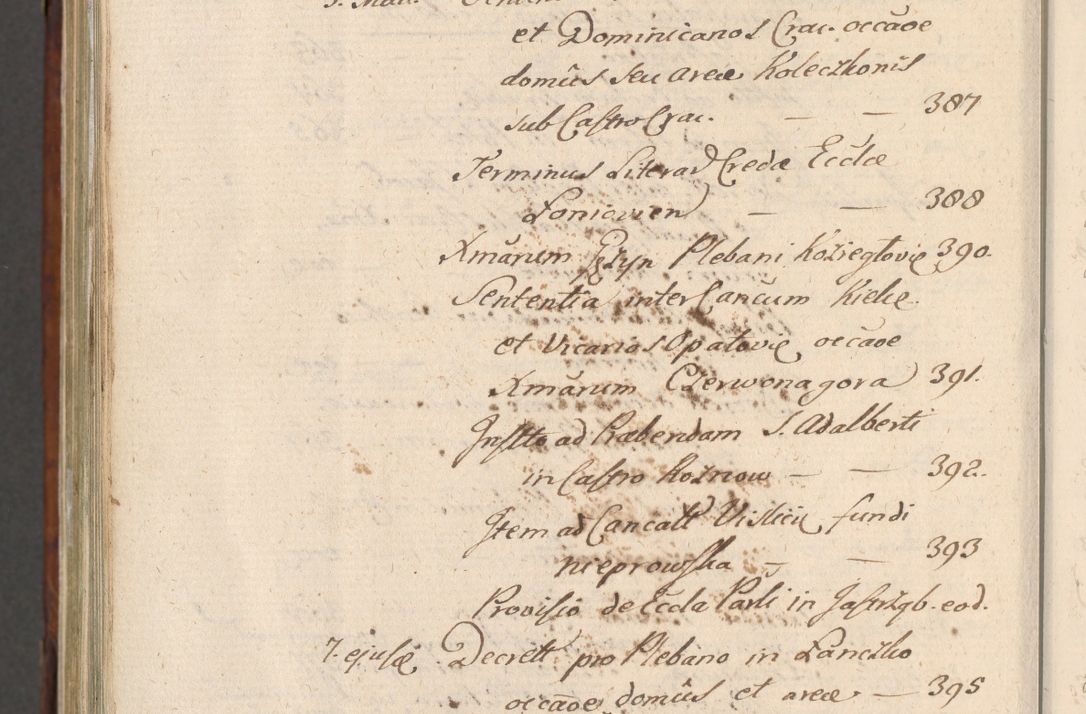 et Dominicanos Crac. occãoe
domûs seu areæ Koleczkonis
sub Castro Crac. — — 387
Terminus Literar Credæ Ecclæ
Loniovien — — 388
Xmãrum Plebani Koziegłovię 390.
Sententia inter Cancum Kielcę
et Vicarios Opatovię occãoe
Xmãrum Czerwonagora 391.
Instto ad Præbendam S. Adalberti
in Castro Roznow — — 392.
Item ad Cancalt Vislicię fundi
nieprowska — — 393
Provisio de Eccla Parli in Jastrząb. eod.
7. ejusdē Decrett pro Plebano in Lanczko
occãoe domûs et areæ — 395